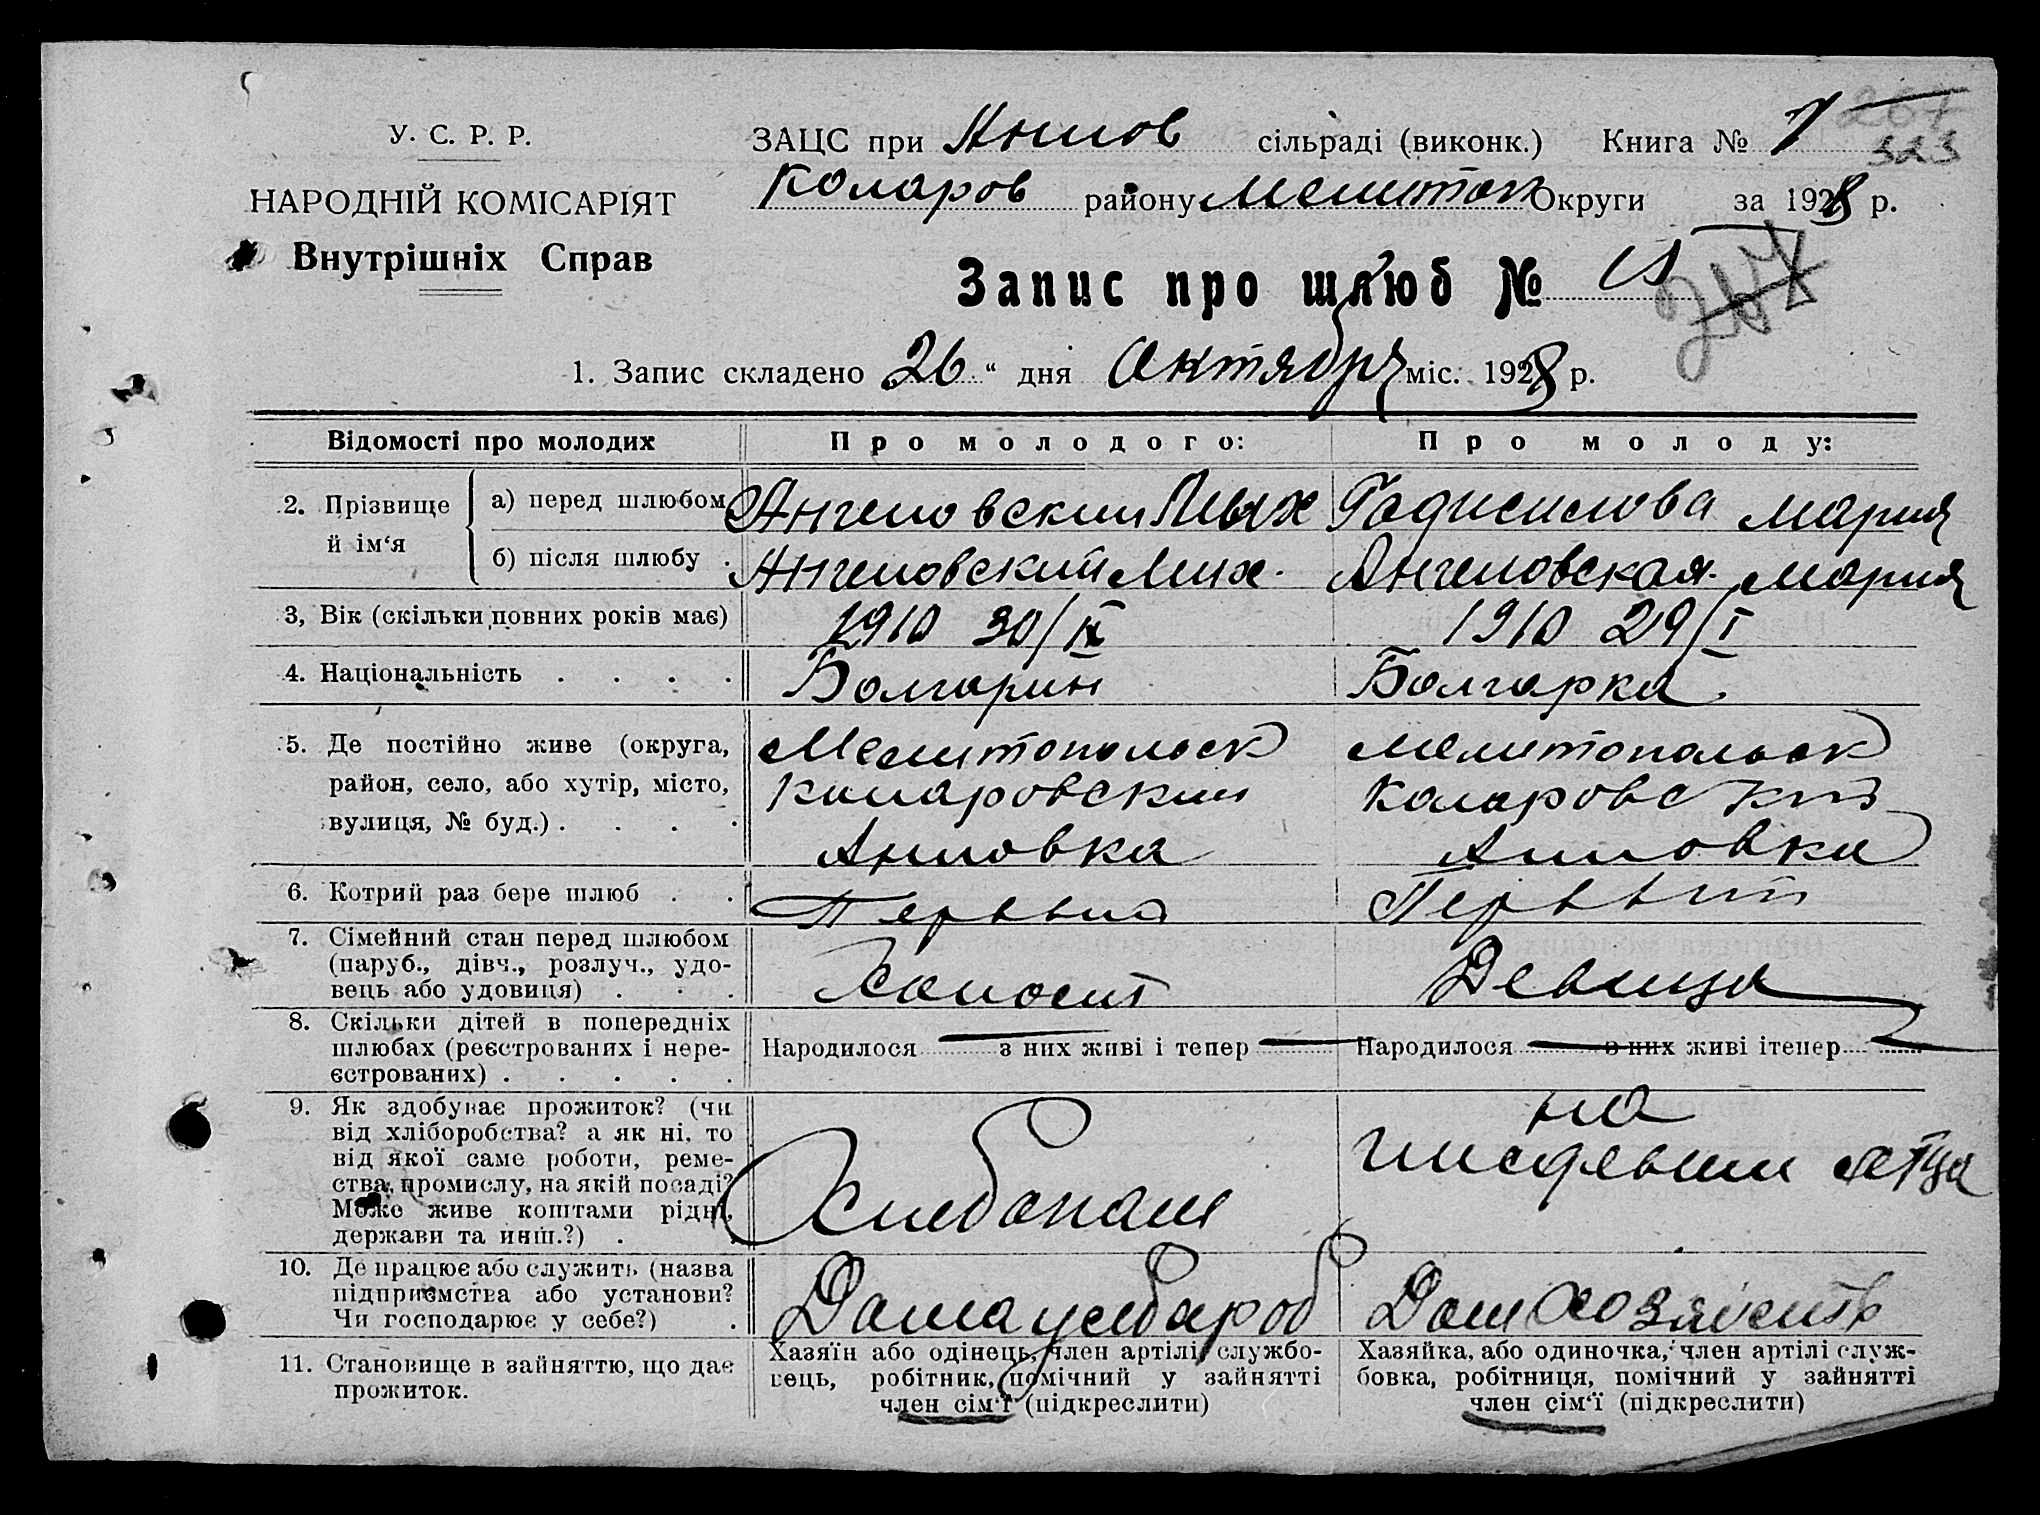 267
323
У. С. Р. Р.
ЗАЦС при Аннов сільраді (виконк.) Книга № 1
НАРОДНІЙ КОМІСАРІЯТ
Коларов району Мелитоп Округи за 1928 р.
Внутрішніх Справ
Запис про шлюб №
1. Запис складено 26 " дня Октября міс. 1928 р.
Відомості про молодих
Про молодого:
Про молоду:
2. Прізвище й ім'я
а) перед шлюбом
Ангеловский Мих
Мария
б) після шлюбу .
Ангеловский Мих.
Ангеловская Мария
3, Вік (скільки повних років має)
1910 30/IX
1910 29/I
4. Національність . . . .
Болгарин
Болгарка
5. Де постійно живе (округа,
район, село, або хутір, місто,
вулиця, № буд.) . . . .
Мелитопольск
Коларовский
Анновка
Мелитопольск
Коларовский
Анновка
6. Котрий раз бере шлюб . .
Первый
Первый
7. Сімейний стан перед шлюбом
(паруб., дівч., розлуч., удо-
вець або удовиця) . . .
Холост
Девица
8. Скільки дітей в попередніх
шлюбах (реєстрованих і нере-
єстрованих) . . . . .
Народилося — з них живі і тепер —
Народилося — з них живі ітепер —
9. Як здобуває прожиток? (чи
від хліборобства? а як ні, то
від якої саме роботи, реме-
ства, промислу, на якій посаді?
Може живе коштами рідні,
держави та инш.?) .
Хлебопаш
на
отца
10. Де працює або служить (назва
підприємства або установи?
Чи господарює у себе?) .
Дома у
Дом хозяйств
11. Становище в зайняттю, що дає
прожиток.
Хазяїн або одінець, член артілі, службо-
вець, робітник, помічний у зайнятті
член сім'ї (підкреслити)
Хазяйка, або одиночка, член артілі служ-
бовка, робітниця, помічний у зайнятті
член сім'ї (підкреслити)